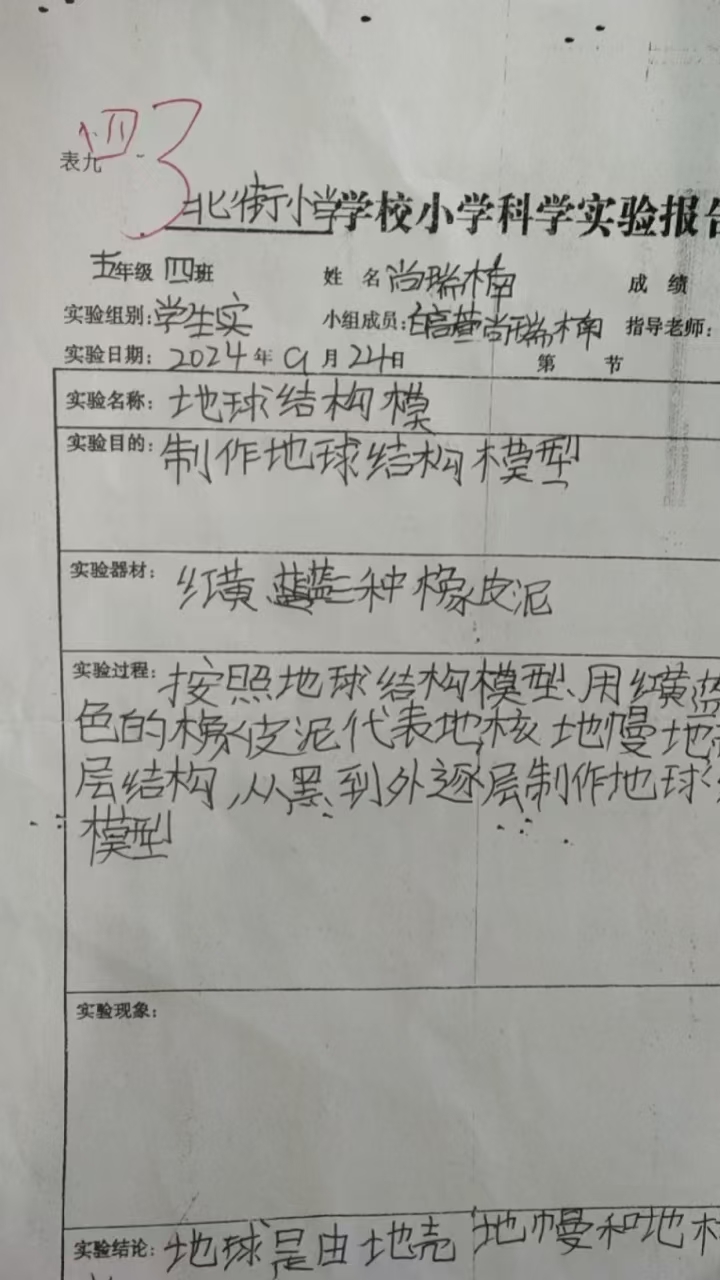 四 3
表九
北街小学学校小学科学实验报告
五年级 四班 姓 名 尚瑞楠 成 绩
实验组别:学生实 小组成员: 尚瑞楠 指导老师:
实验日期: 2024年 9月 24日 第 节
实验名称: 地球结构模
实验目的: 制作地球结构模型
实验器材: 红黄、蓝三种橡皮泥
实验过程: 按照地球结构模型、用红黄蓝
色的橡皮泥代表地核 地幔地壳
层结构,从里到外逐层制作地球
模型
实验现象:
实验结论: 地球是由地壳 地幔和地核